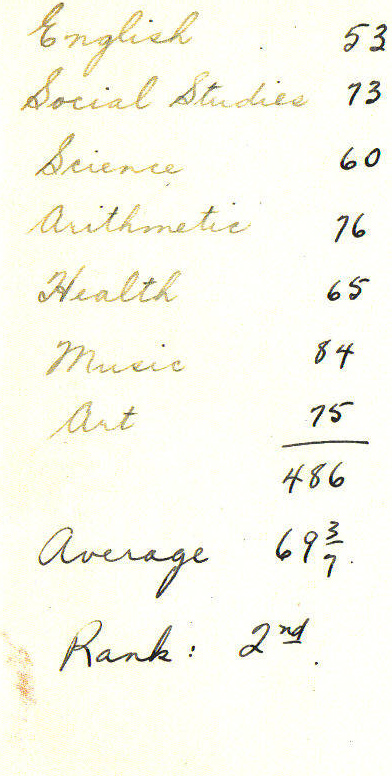 English 53
Social Studies 73
Science 60
Arithmetic 76
Health 65
Music 84
Art 75
486
Average 69 3/7.
Rank: 2nd.